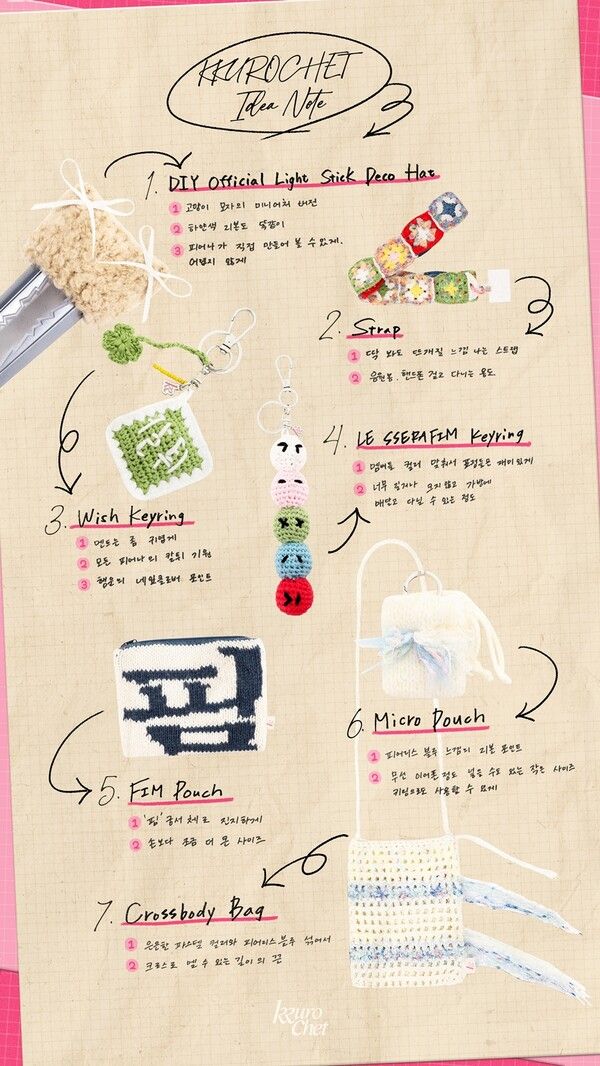 KKUROCHET
Idea Note
1. DIY Official Light Stick Deco Hat
1 고양이 모자의 미니어처 버전
2 하얀색 리본도 똑같이
3 피어나가 직접 만들어 볼 수 있게.
어렵지 않게
2. Strap
1 딱 봐도 뜨개질 느낌 나는 스트랩
2 응원봉, 핸드폰 걸고 다니는 용도
4. LE SSERAFIM Keyring
1 멤버들 컬러 맞춰서 표정들은 재미있게
2 너무 길거나 크지 않고 가방에
매달고 다닐 수 있는 정도
3. Wish Keyring
1 멘트는 좀 귀엽게
2 모든 피어나의 칼퇴 기원
3 행운의 네잎클로버 포인트
핌
6. Micro Pouch
1 피어리스 블루 느낌의 리본 포인트
2 무선 이어폰 정도 넣을 수도 있는 작은 사이즈
키링으로도 사용할 수 있게
5. FIM Pouch
1 '핌' 궁서체로 진지하게
2 손보다 조금 더 큰 사이즈
7. Crossbody Bag
1 은은한 파스텔 컬러와 피어리스 블루 섞어서
2 크로스로 멜 수 있는 길이의 끈
kkuro
Chet